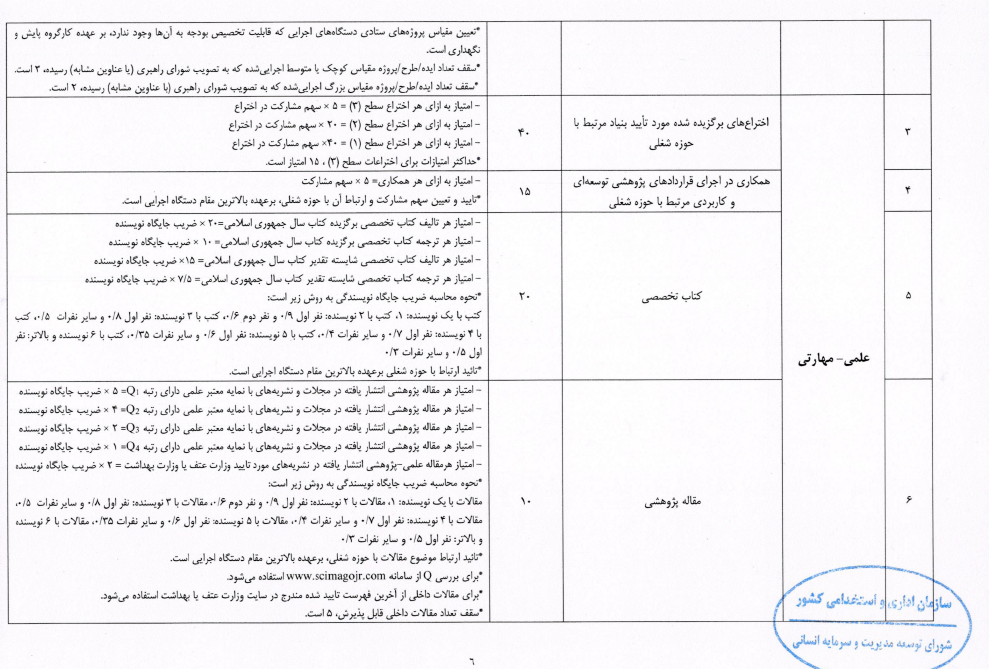 *تعیین مقیاس پروژه‌های ستادی دستگاه‌های اجرایی که قابلیت تخصیص بودجه به آن‌ها وجود ندارد، بر عهده کارگروه پایش و
نگهداری است.
*سقف تعداد ایده/طرح/پروژه مقیاس کوچک یا متوسط اجرایی‌شده که به تصویب شورای راهبری (یا عناوین مشابه) رسیده، ۳ است.
*سقف تعداد ایده/طرح/پروژه مقیاس بزرگ اجرایی‌شده که به تصویب شورای راهبری (با عناوین مشابه) رسیده، ۲ است.
علمی- مهارتی
۳
اختراع‌های برگزیده شده مورد تأیید بنیاد مرتبط با
حوزه شغلی
۴۰
- امتیاز به ازای هر اختراع سطح (۳) = ۵ × سهم مشارکت در اختراع
- امتیاز به ازای هر اختراع سطح (۲) = ۲۰ × سهم مشارکت در اختراع
- امتیاز به ازای هر اختراع سطح (۱) = ۴۰× سهم مشارکت در اختراع
*حداکثر امتیازات برای اختراعات سطح (۳) ، ۱۵ امتیاز است.
۴
همکاری در اجرای قراردادهای پژوهشی توسعه‌ای
و کاربردی مرتبط با حوزه شغلی
۱۵
- امتیاز به ازای هر همکاری= ۵ × سهم مشارکت
*تایید و تعیین سهم مشارکت و ارتباط آن با حوزه شغلی، برعهده بالاترین مقام دستگاه اجرایی است.
۵
کتاب تخصصی
۲۰
- امتیاز هر تالیف کتاب تخصصی برگزیده کتاب سال جمهوری اسلامی=۲۰ × ضریب جایگاه نویسنده
- امتیاز هر ترجمه کتاب تخصصی برگزیده کتاب سال جمهوری اسلامی= ۱۰ × ضریب جایگاه نویسنده
- امتیاز هر تالیف کتاب تخصصی شایسته تقدیر کتاب سال جمهوری اسلامی= ۱۵× ضریب جایگاه نویسنده
- امتیاز هر ترجمه کتاب تخصصی شایسته تقدیر کتاب سال جمهوری اسلامی= ۷/۵ × ضریب جایگاه نویسنده
*نحوه محاسبه ضریب جایگاه نویسندگی به روش زیر است:
کتب با یک نویسنده: ۱، کتب با ۲ نویسنده: نفر اول ۰/۹ و نفر دوم ۰/۶، کتب با ۳ نویسنده: نفر اول ۰/۸ و سایر نفرات ۰/۵، کتب
با ۴ نویسنده: نفر اول ۰/۷ و سایر نفرات ۰/۴، کتب با ۵ نویسنده: نفر اول ۰/۶ و سایر نفرات ۰/۳۵، کتب با ۶ نویسنده و بالاتر: نفر
اول ۰/۵ و سایر نفرات ۰/۳
*تائید ارتباط با حوزه شغلی برعهده بالاترین مقام دستگاه اجرایی است.
۶
مقاله پژوهشی
۱۰
- امتیاز هر مقاله پژوهشی انتشار یافته در مجلات و نشریه‌های با نمایه معتبر علمی دارای رتبه Q1= ۵ × ضریب جایگاه نویسنده
- امتیاز هر مقاله پژوهشی انتشار یافته در مجلات و نشریه‌های با نمایه معتبر علمی دارای رتبه Q2= ۴ × ضریب جایگاه نویسنده
- امتیاز هر مقاله پژوهشی انتشار یافته در مجلات و نشریه‌های با نمایه معتبر علمی دارای رتبه Q3= ۲ × ضریب جایگاه نویسنده
- امتیاز هر مقاله پژوهشی انتشار یافته در مجلات و نشریه‌های با نمایه معتبر علمی دارای رتبه Q4= ۱ × ضریب جایگاه نویسنده
- امتیاز هرمقاله علمی-پژوهشی انتشار یافته در نشریه‌های مورد تایید وزارت عتف یا وزارت بهداشت = ۲ × ضریب جایگاه نویسنده
*نحوه محاسبه ضریب جایگاه نویسندگی به روش زیر است:
مقالات با یک نویسنده: ۱، مقالات با ۲ نویسنده: نفر اول ۰/۹ و نفر دوم ۰/۶، مقالات با ۳ نویسنده: نفر اول ۰/۸ و سایر نفرات ۰/۵،
مقالات با ۴ نویسنده: نفر اول ۰/۷ و سایر نفرات ۰/۴، مقالات با ۵ نویسنده: نفر اول ۰/۶ و سایر نفرات ۰/۳۵، مقالات با ۶ نویسنده
و بالاتر: نفر اول ۰/۵ و سایر نفرات ۰/۳
*تائید ارتباط موضوع مقالات با حوزه شغلی، برعهده بالاترین مقام دستگاه اجرایی است.
*برای بررسی Q از سامانه www.scimagojr.com استفاده می‌شود.
*برای مقالات داخلی از آخرین فهرست تایید شده مندرج در سایت وزارت عتف یا بهداشت استفاده می‌شود.
*سقف تعداد مقالات داخلی قابل پذیرش، ۵ است.
سازمان اداری و استخدامی کشور
شورای توسعه مدیریت و سرمایه انسانی
۶